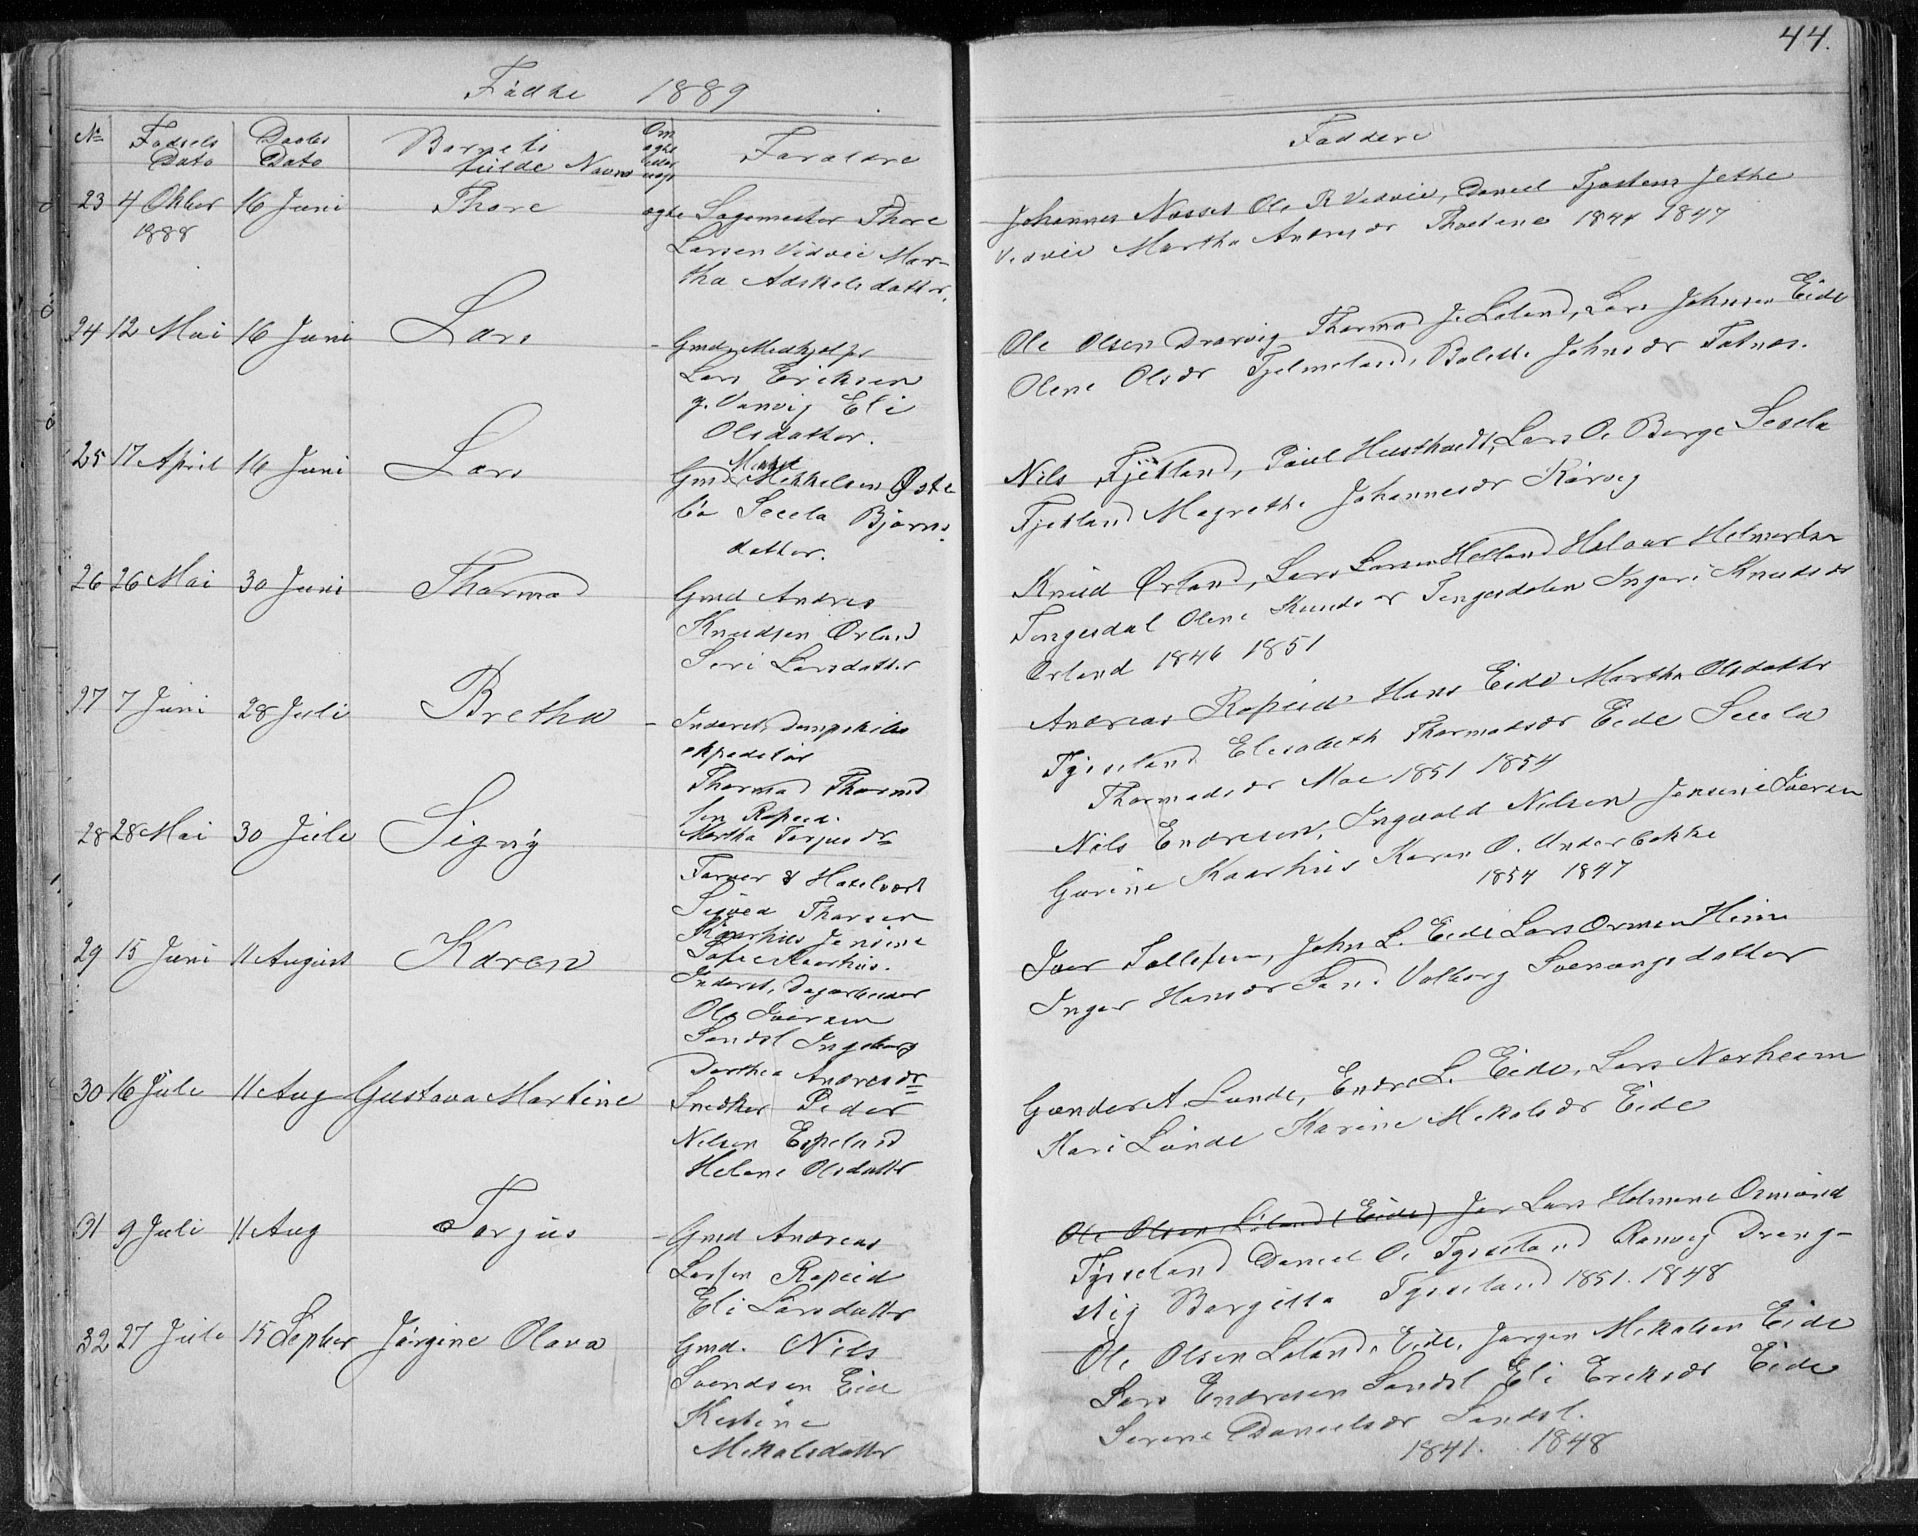 44.
Fødte 1889
No Fødsels Dato Daabs Dato Barnets fulde Navn Om ægte eller uægt Forældre Faddere
23 4 Oktber 1888 16 Juni Thore ægte Sagemester Thore
Larsen Vidvei Mar-
tha Adskelsdatter.
Johannes Næsset Ole R Vidvei, Daniel Tjøstem Jethe
Vidvei Martha Andresdr Thostene 1844 1847
24 12 Mai 16 Juni Lars - Gmd Medhjelper
Lars Eriksen
y. Vanvig Eli
Olsdatter.
Ole Olsen Drarvig Thormod J. Løland, Lars Johnsen Eide
Olene Olsdr Tjelmeland, Bolette Johnsdr Fatnæs.
25 17 April 16 Juni Lars Gmd Mikkelsen Øste
bø Seeela Bjørns
datter.
Nils Fjetland, Poul Husthvedt, Lars O. Berge Seeela
Fjetland Magrethe Johannesdr Kårvig
26 26 Mai 30 Juni Thormod Gmd Andres
Knudsen Ørland
Seri Larsdatter
Knud Ørland, Lars Larsen Helland Halvar Helmertsen
Tengesdal Olene Knudsdr Tengesdalen Ingeri Knudsdr
Orland 1846 1851
27 7 Juni 28 Juli Bretha - Inderst, Dampskibs
ekspeditør
Thormod Thormod
sen Ropeid.
Martha Torjusdr
Andreas Ropeid Hans Eide Martha Olsdatter
Tysseland Elisabeth Thormodsdr Eide Seeela
Thormodsdr Moe 1851 1854
28 28 Mai 30 Juli Signÿ
Farver & Hotelvært
Sjøved Thorsen
Kaarhus Jensine
Sofie Kaarhus.
Nils Endresen, Ingvald Nilsen Jensine Iversen
Gurine Kaarhus Karen O. Underbakke
1854 1847
29 15 Juni 11 August Karen
Inderst, Dagarbeider
Ole Iversen
Sandsl Ingeborg
Dorthea Andresdr
Iver Tollefsen, John L. Eide Lars Ormsen Heim
Inger Hansdr San. Valborg Svenungsdatter
30 16 Juli 11 Aug Gustava Martine Snedker Peder
Nilsen Espeland
Helene Olsdatter
Gunder A. Lunde, Endre L. Eide, Lars Nærheim
Kari Lunde Karine Mikalsdr Eide
31 9 Juli 11 Aug Torjus - Gmd Andreas
Larsen Ropeid
Eli Larsdatter
Ole Olsen Løland (Eide) Jør Lars Helmene Osmund
Tysseland Daniel O. Tysseland Ranveig Dreng-
stig Bergitta Tysseland 1851. 1848
32 27 Juli 15 Septber Jørgine Olava Gmd. Nils
Svendsen Eide
Kistine
Mikalsdatter
Ole Olsen Løland, Eide, Jørgen Mikalsen Eide
Lars Endresen Sandsl Eli Eriksdr Eide
Serene Danielsdr Sandsl.
1841. 1848